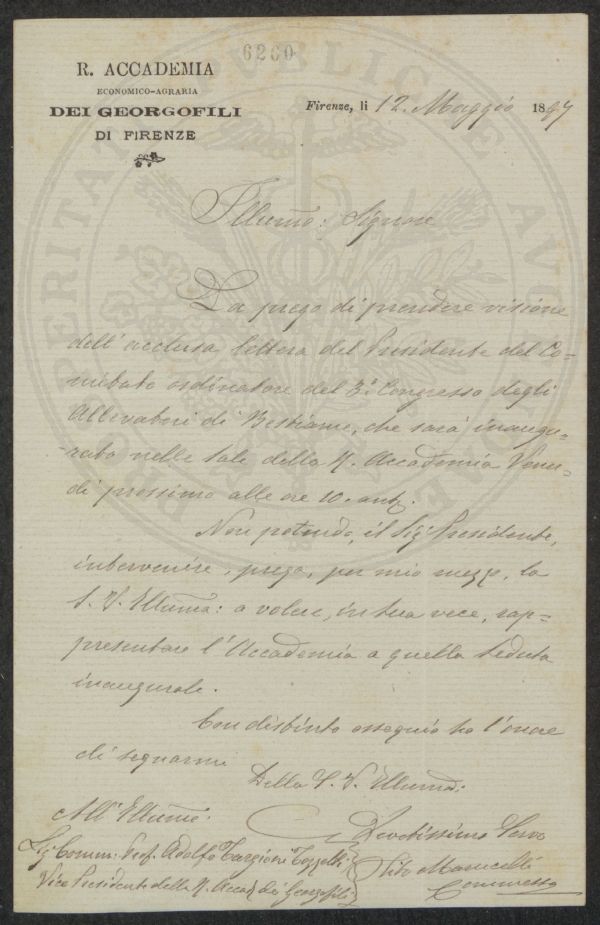 6260
R. ACCADEMIA
ECONOMICO-AGRARIA
DEI GEORGOFILI
DI FIRENZE
Firenze, li 12. Maggio 1897
Illumo: Signore
La prego di prendere visione
dell'acclusa lettera del Presidente del Co=
mitato ordinatore del 3.° Congresso degli
Allevatori di Bestiame, che sarà inaugu=
rato nelle Sale della R. Accademia Vener=
di prossimo alle ore 10. ant.
Non potendo, il Sig. Presidente,
intervenire, prega, per mio mezzo, la
S. V. Illuma: a volere, in sua vece, rap=
presentare l'Accademia a quella seduta
inaugurale.
Con distinto ossequio ho l'onore
di segnarmi
Della S. V. Illuma:
All'Illumo:
Sig. Comm: Prof. Adolfo Targioni Tozzetti
Vice Presidente della R. Accad. dei Georgofili
Devotissimo Servo
Commesso
PROSPERITATI PUBLICAE AUGENDAE